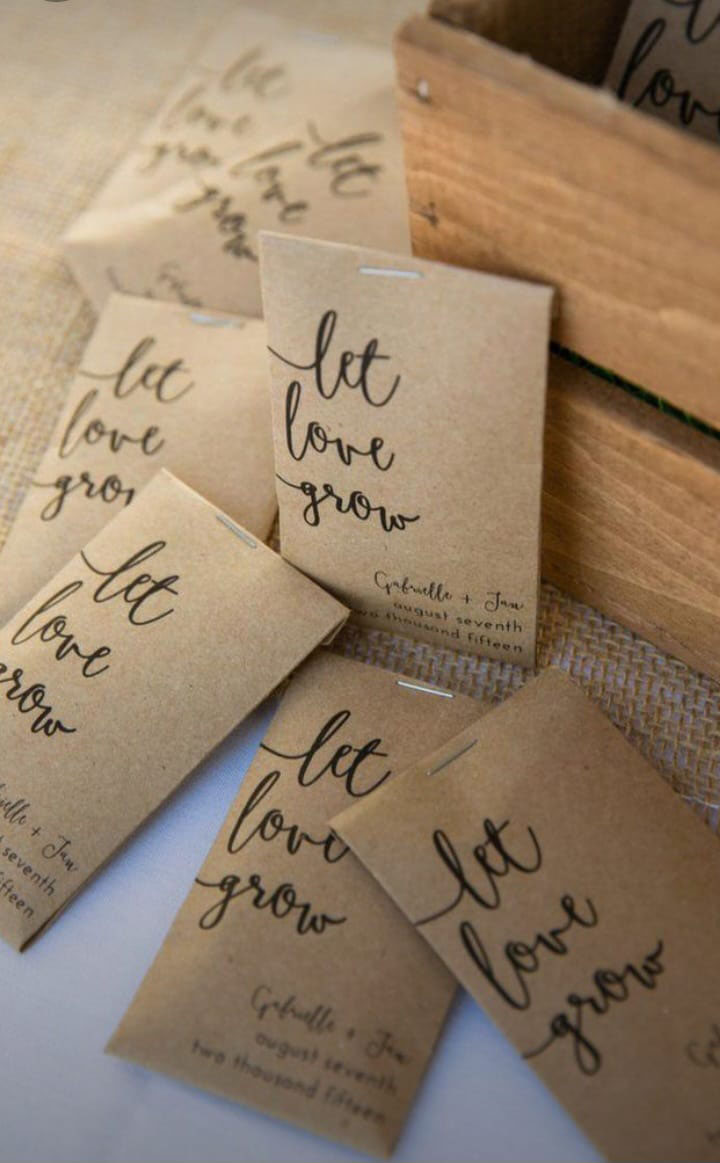 let
love
grow
let
love
grow
love
let
love
grow
Gabrielle + Jan
august seventh
two thousand fifteen
let
love
let
love
grow
+ Jan
seventh
fifteen
let
love
grow
Gabrielle + Jan
august seventh
two thousand fifteen
let
love
grow